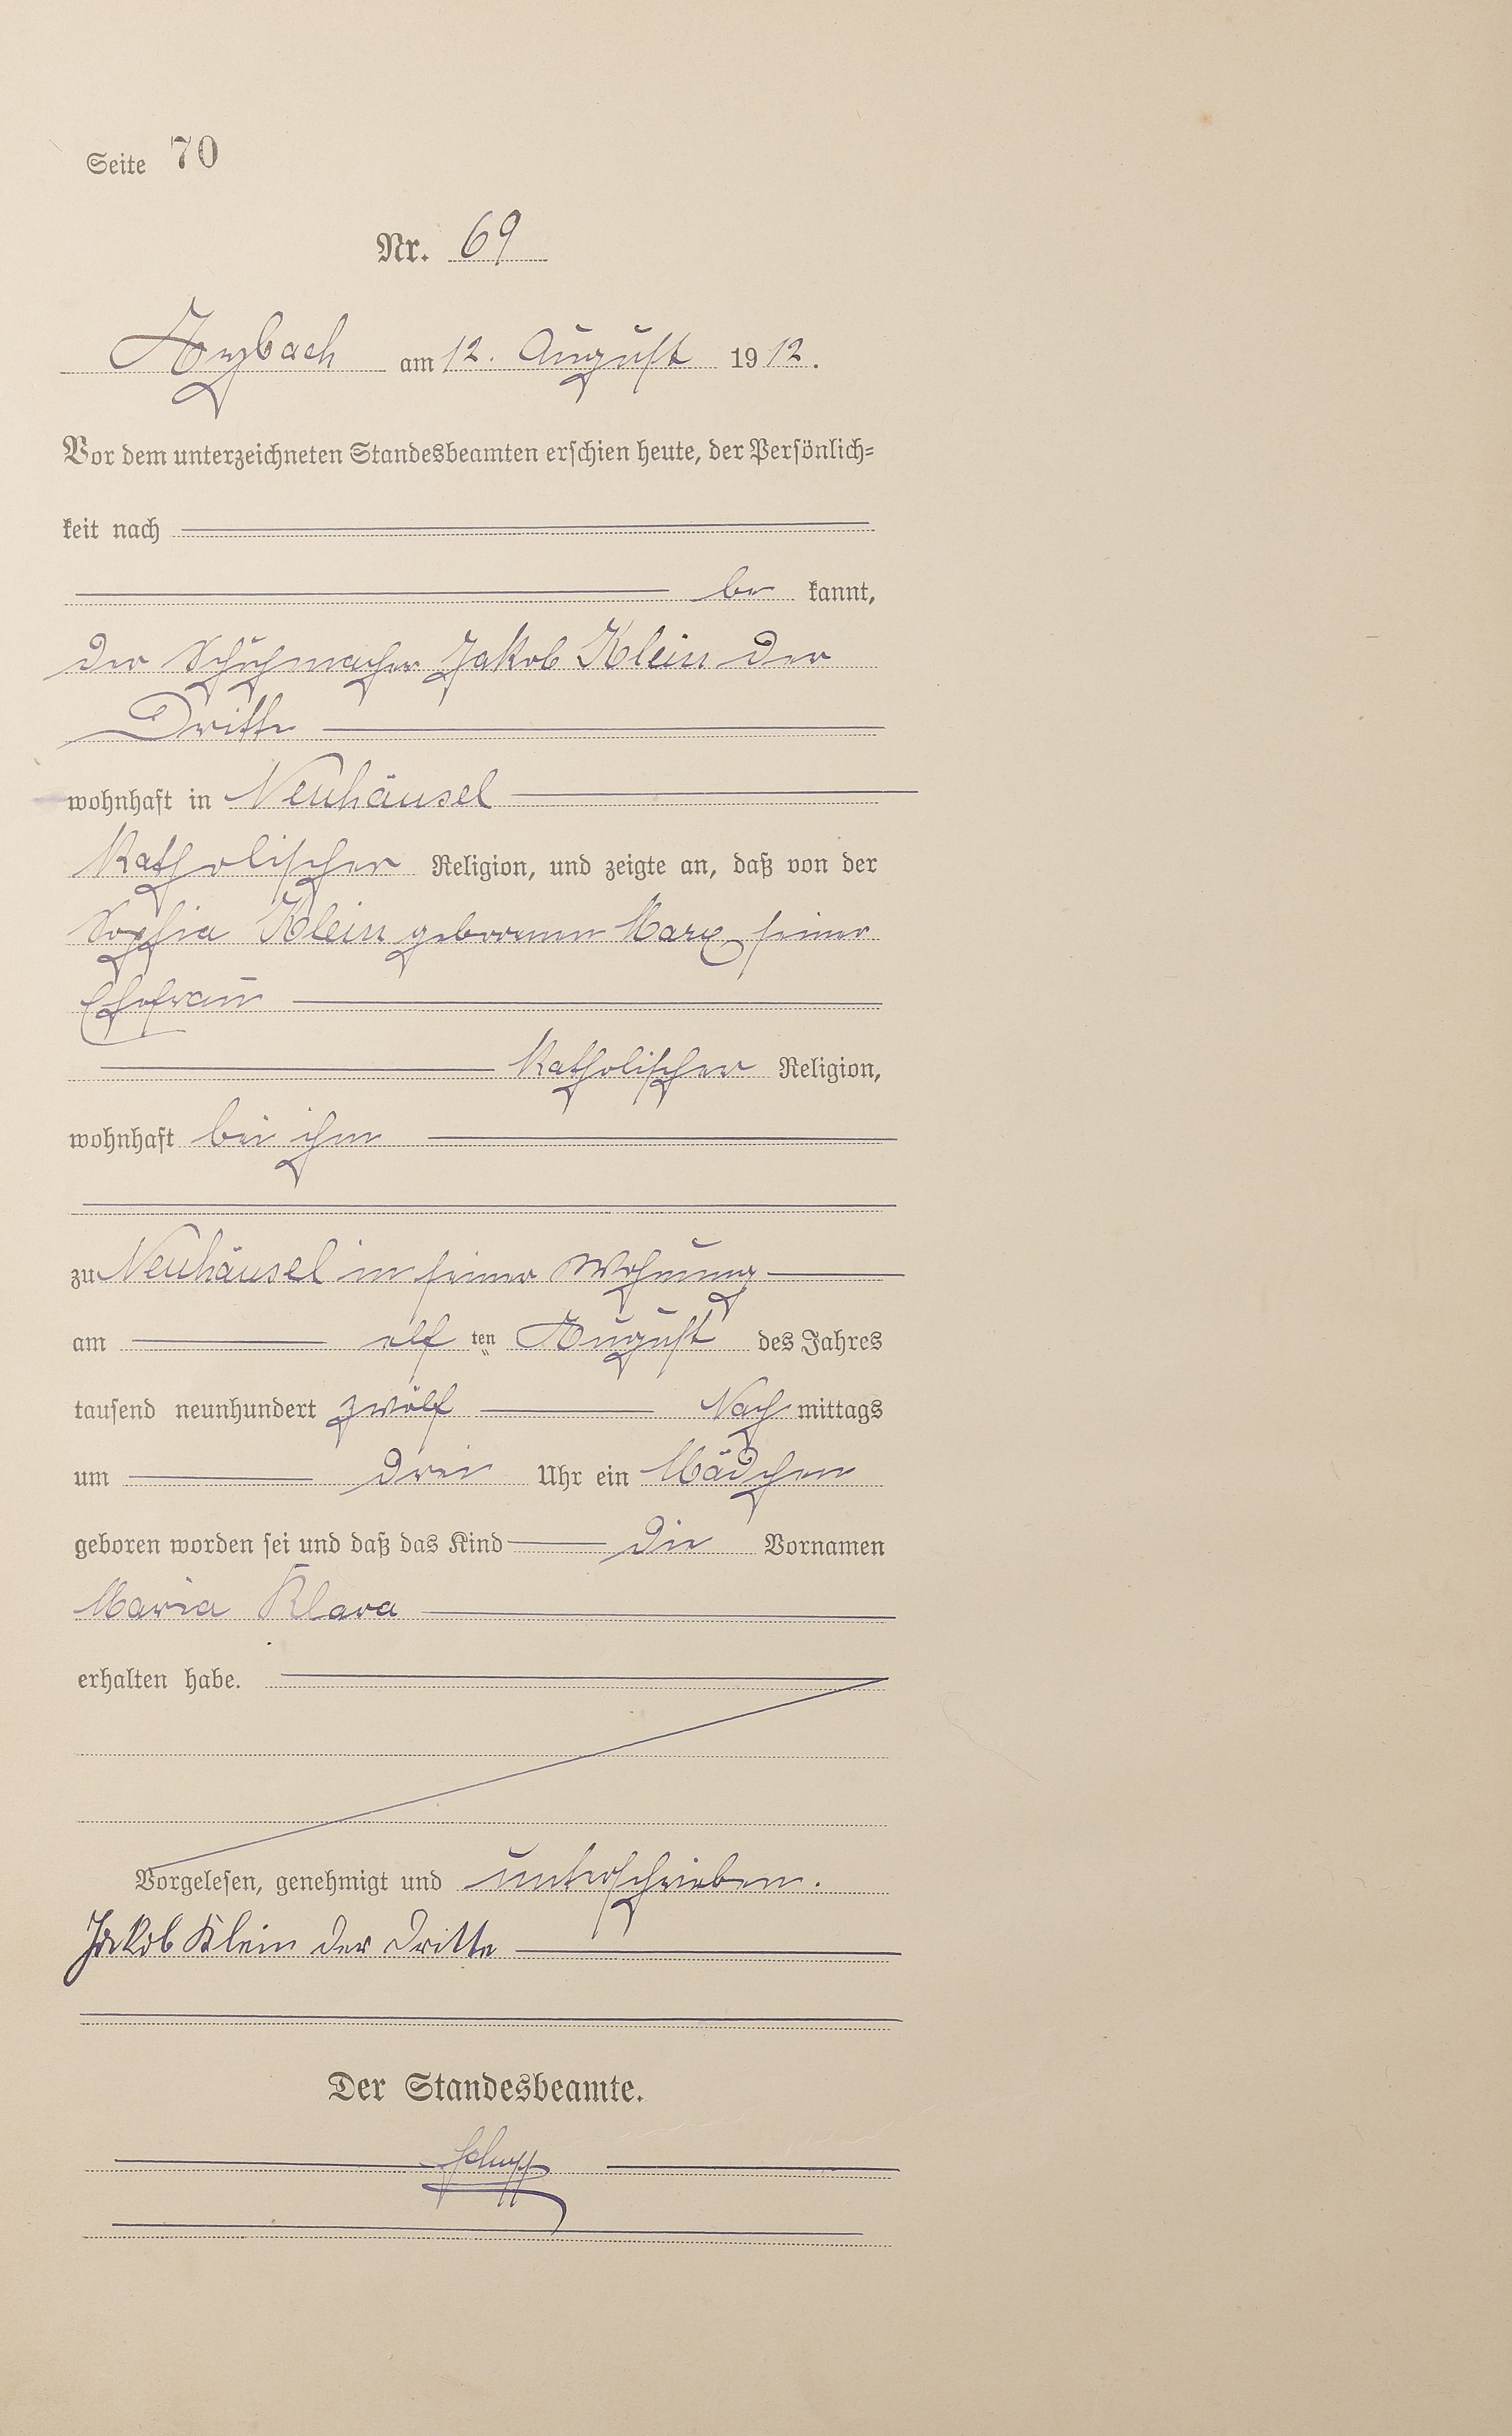 Seite 70
Nr. 69
Arzbach am 12. August 1912.
Vor dem unterzeichneten Standesbeamten erschien heute, der Persönlich=
keit nach
be kannt,
der Schuhmacher Jakob Klein der
Dritte
wohnhaft in Neuhäusel
katholischer Religion, und zeigte an, daß von der
Sophia Klein geborenen Marx seiner
Ehefrau
katholischer Religion,
wohnhaft bei ihm
zu Neuhäusel in seiner Wohnung
am elf ten August des Jahres
tausend neunhundert zwölf Nach mittags
um drei Uhr ein Mädchen
geboren worden sei und daß das Kind die Vornamen
Maria Klara
erhalten habe.
Vorgelesen, genehmigt und unterschrieben.
Jakob Klein der Dritte
Der Standesbeamte.